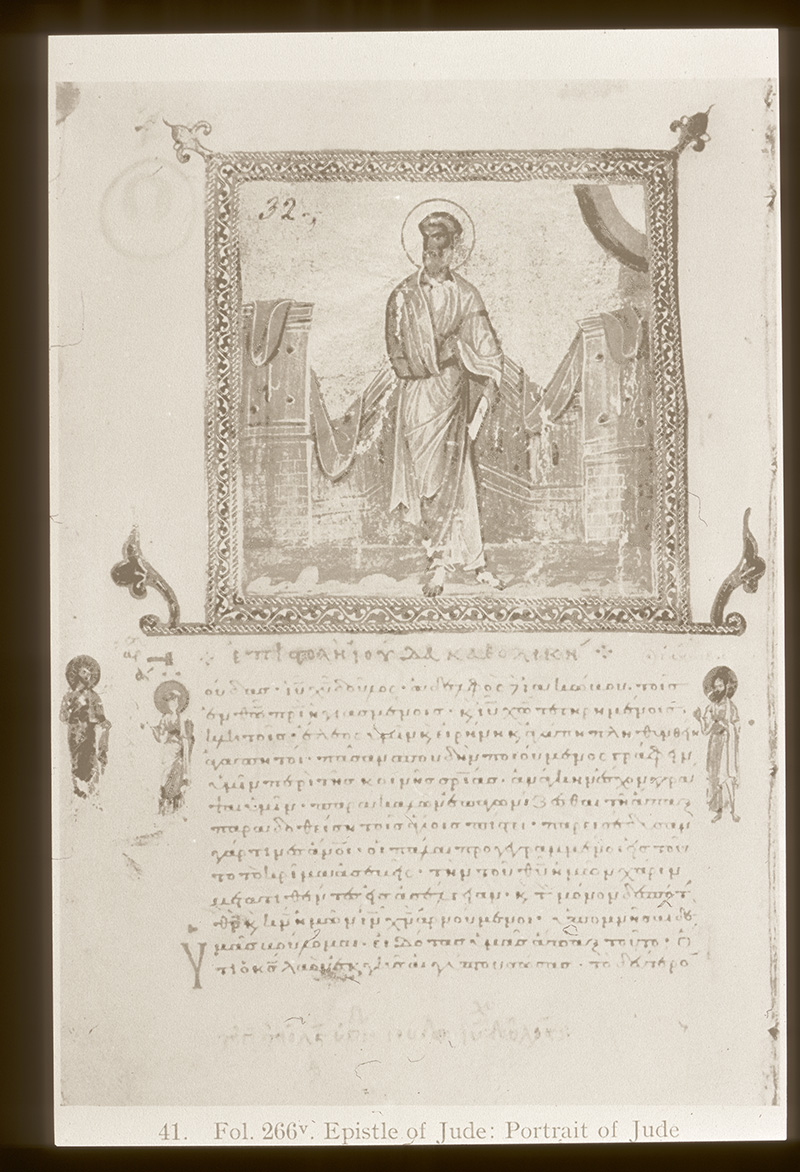 32
ἐπιϛολὴ ἰούδα καθολικὴ
ούδας · ἰυ χυ δοῦλος · ἀδελφὸς δὲ ἰακώβου · τοῖς
ἐν θω πρι ἡγιασμένοις · κ ιυ χω τετηρημένοις
κλητοῖς · ἔλεος ὑμῖν κ εἰρήνη κ ἀγάπη πληθυνθείη
ἀγαπητοὶ · πᾶσαν σπουδὴν ποιούμενος γράφειν
ὑμῖν περὶ τῆς κοινῆς σρίας · ἀνάγκην ἔσχον γρά
ψαι ὑμῖν · παρακαλῶν ἐπαγωνίζεσθαι τῆ ἅπαξ
παραδοθείση τοῖς ἁγίοις πίστει · παρεισέδυσαν
γάρ τινες ἄνοι · οἱ πάλαι προγεγραμμένοι εἰς τοῦ
το τὸ κρίμα ἀσεβεῖς · τὴν τοῦ θυ ἡμῶν χάριν
μετατιθέντες εἰς ἀσέλγειαν · κ τὸν μόνον δεσπότ
θν κ κν ἡμῶν ιν χν ἀρνούμενοι · ὑπομνῆσαι δὲ
ὑμᾶς βούλομαι · εἰδότας ὑμᾶς ἅπαξ τοῦτο · ὅ
τι ὁ κς λαὸν ἐκ γῆς αἰγύπτου σώσας · τὸ δεύτερο
41. Fol. 266v. Epistle of Jude: Portrait of Jude